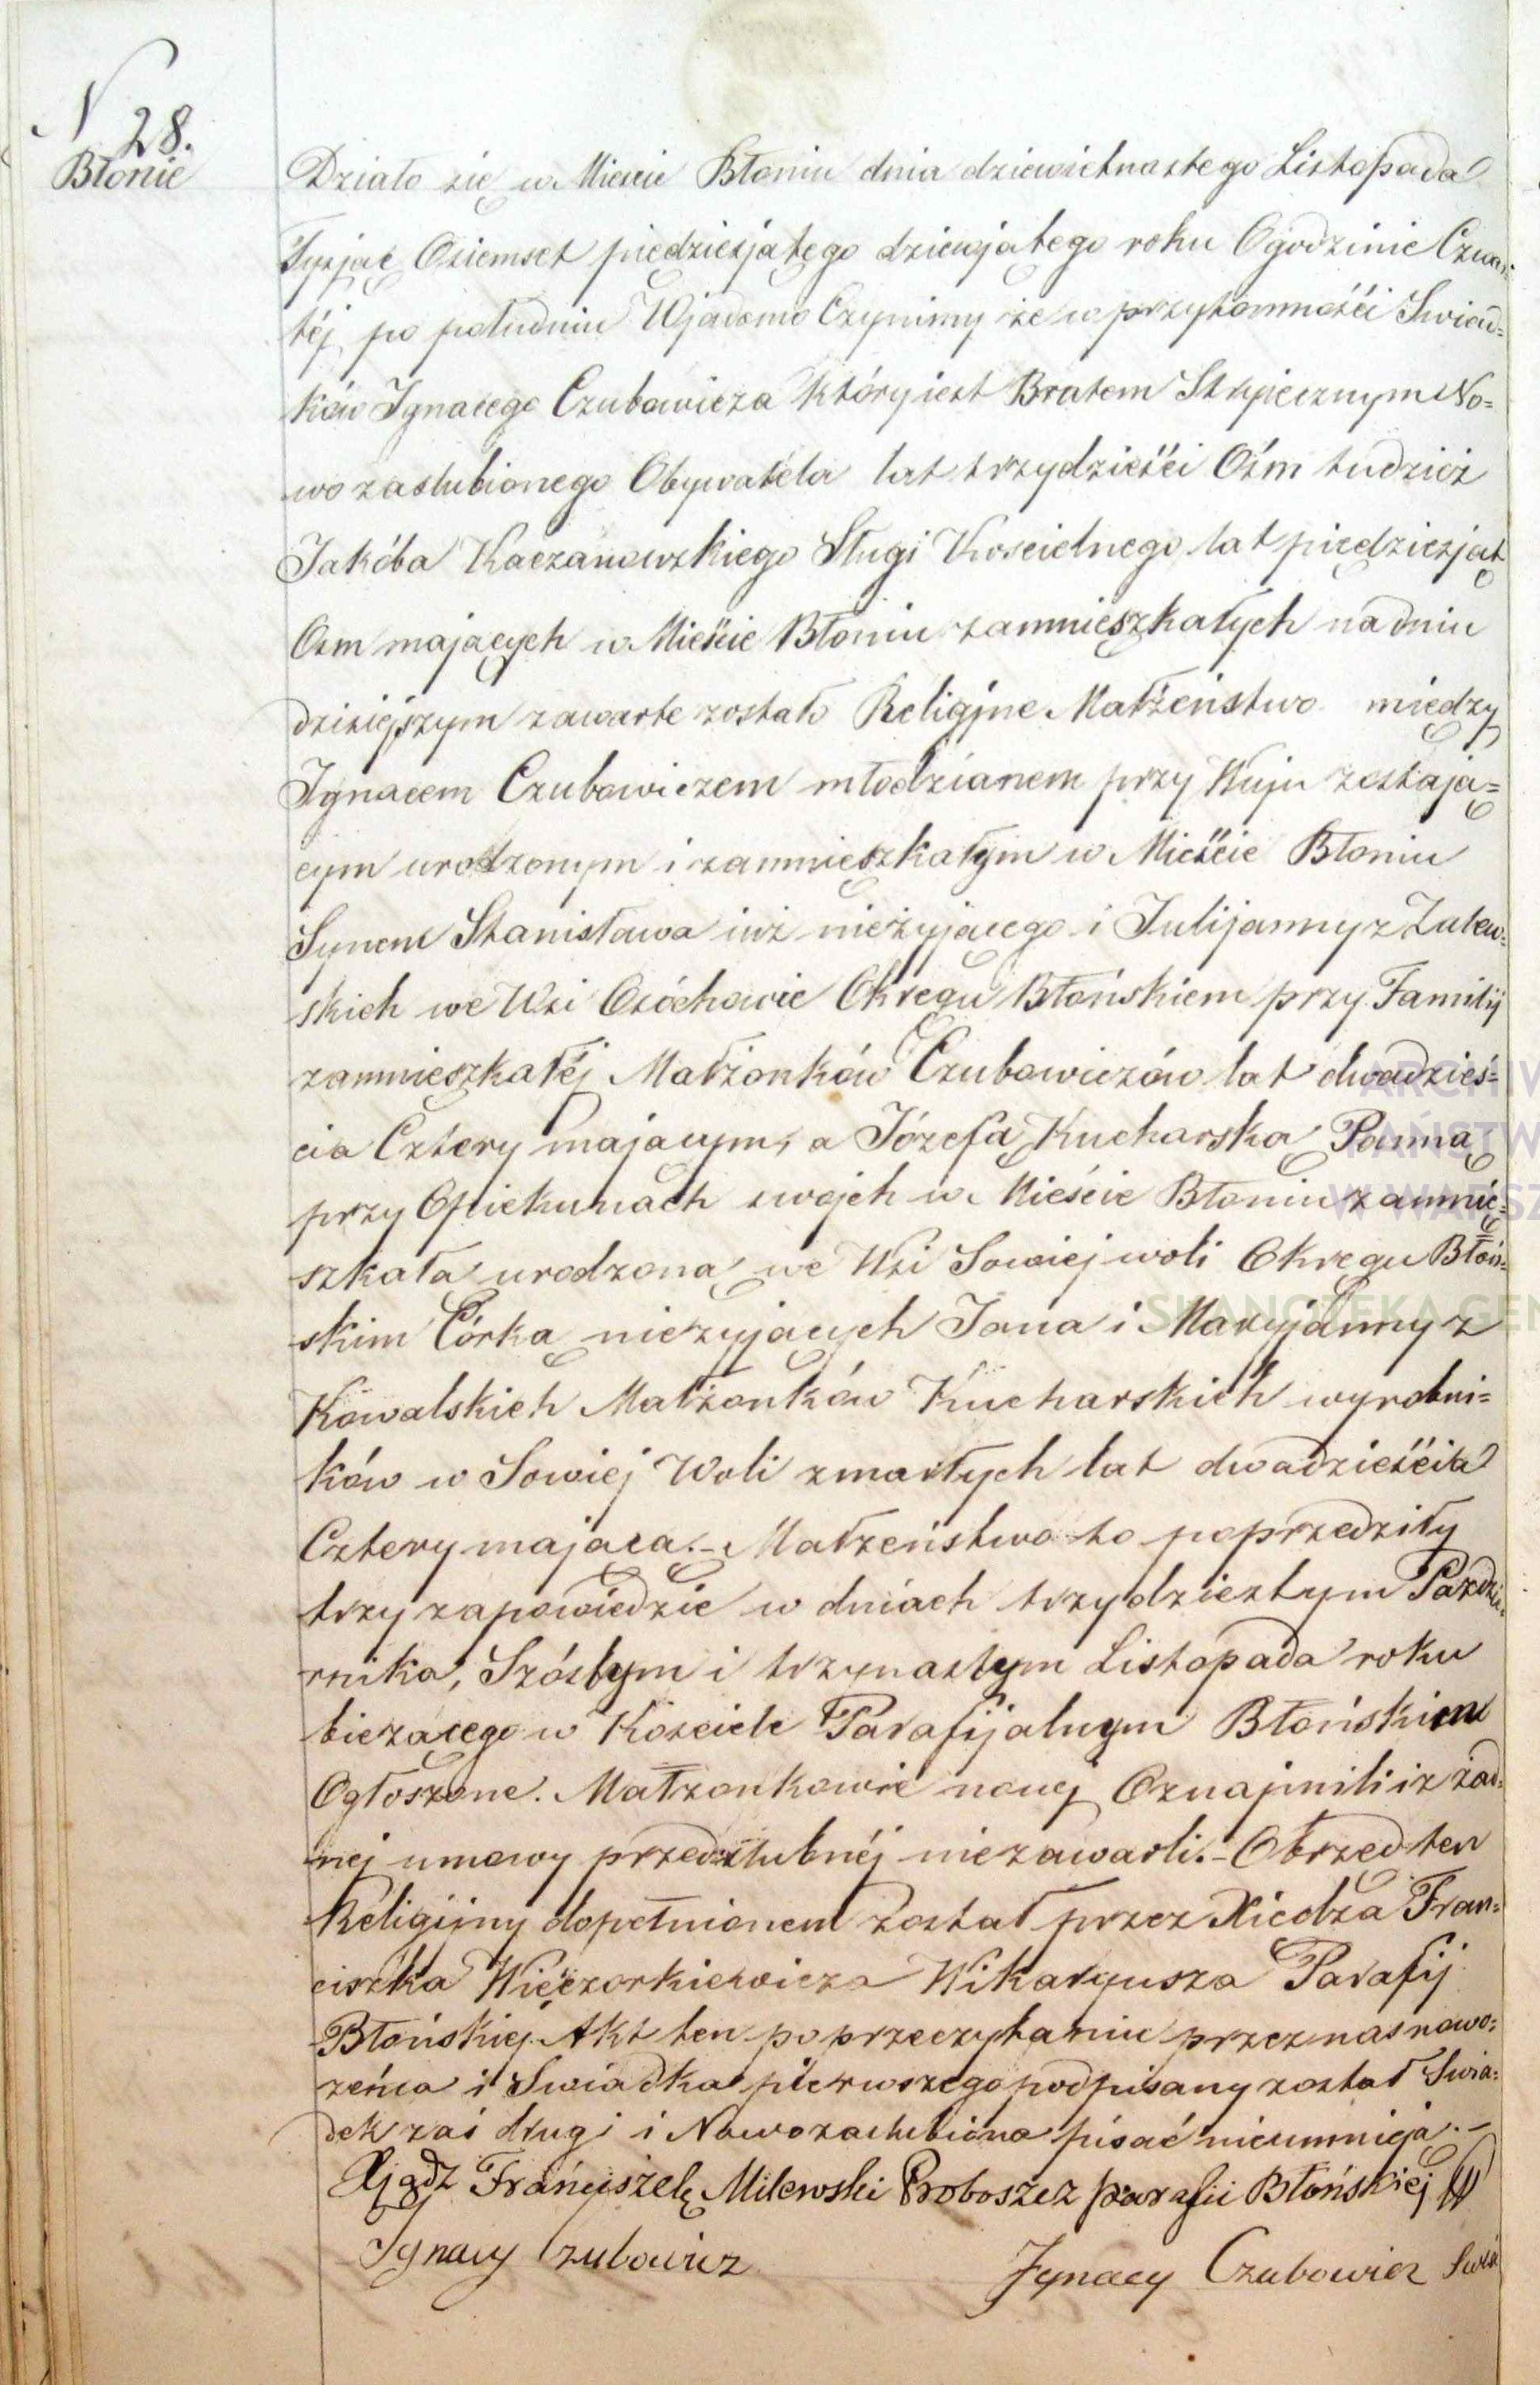 N 28.
Błonie
Działo się w Mieście Błoniu dnia dziewietnastego Listopada
Tysjąc Osiemset piędziesjątego dziewjątego roku O godzinie Czwar=
téj po południu Wjadomo Czynimy że w przytomności Swiad=
ków Ignacego Czubowicza który iest Bratem Stryiecznym No=
wo zaslubionego Obywatela lat trzydzieści Ośm tudzież
Jakóba Kaczanowskiego Sługi Koscielnego lat piędziesjąt
Osm mających w Mieście Błoniu zammieszkałych na dniu
dzisiejszym zawarte zostało Religijne Małżeństwo między
Ignacem Czubowiczem młodzianem przy Wuju zostają=
cym urodzonym i zammieszkałym w Mieście Błoniu
Synem Stanisława iuż nieżyjącego i Julijanny z Zalew=
skich we Wsi Ozóchowie Okręgu Błońskiem przy Familij
zammieszkałéj Małżonków Czubowiczów lat dwadzieś=
cia Cztery mającym, a Józefą Kucharską Panną
przy Opiekunach swojch w Mieście Błoniu zammie=
szkałą urodzoną we Wsi Sowiej woli Okręgu Błoń=
skim Córką nieżyjących Jana i Maryjanny z
Kowalskich Małżonków Kucharskich wyrobni=
ków w Sowiej Woli zmarłych lat dwadzieścia
Cztery mającą.- Małżeństwo to poprzedziły
trzy zapowiedzie w dniach trzydziestym Paździe=
rnika, Szóstym i trzynastym Listopada roku
bieżącego w Kosciele Parafijalnym Błońskiem
Ogłoszone. Małżonkowie nowj Oznajmili iż żad=
nej umowy przedslubnéj niezawarli.- Obrzęd ten
Religijny dopełnionem został przez Xiędza Fran=
ciszka Wieczorkiewicza Wikaryusza Parafij
Błońskiej. Akt ten po przeczytaniu przez nas nowo=
żeńca i Swiadka pierwszego podpisany został Swia=
dek zaś drugi i Nowozaslubiona pisać nieumnieją.-
Xjądz Franciszek Milewski Proboszcz parafii Błońskiej
Ignacy Czubowicz
Ignacy Czubowicz Swia
ARCHIW
PAŃSTW
W WARSZ
SKANOTEKA GEN